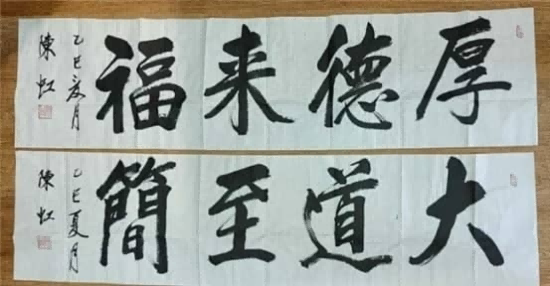 厚德来福
乙巳夏月
陳虹
大道至簡
乙巳夏月
陳虹